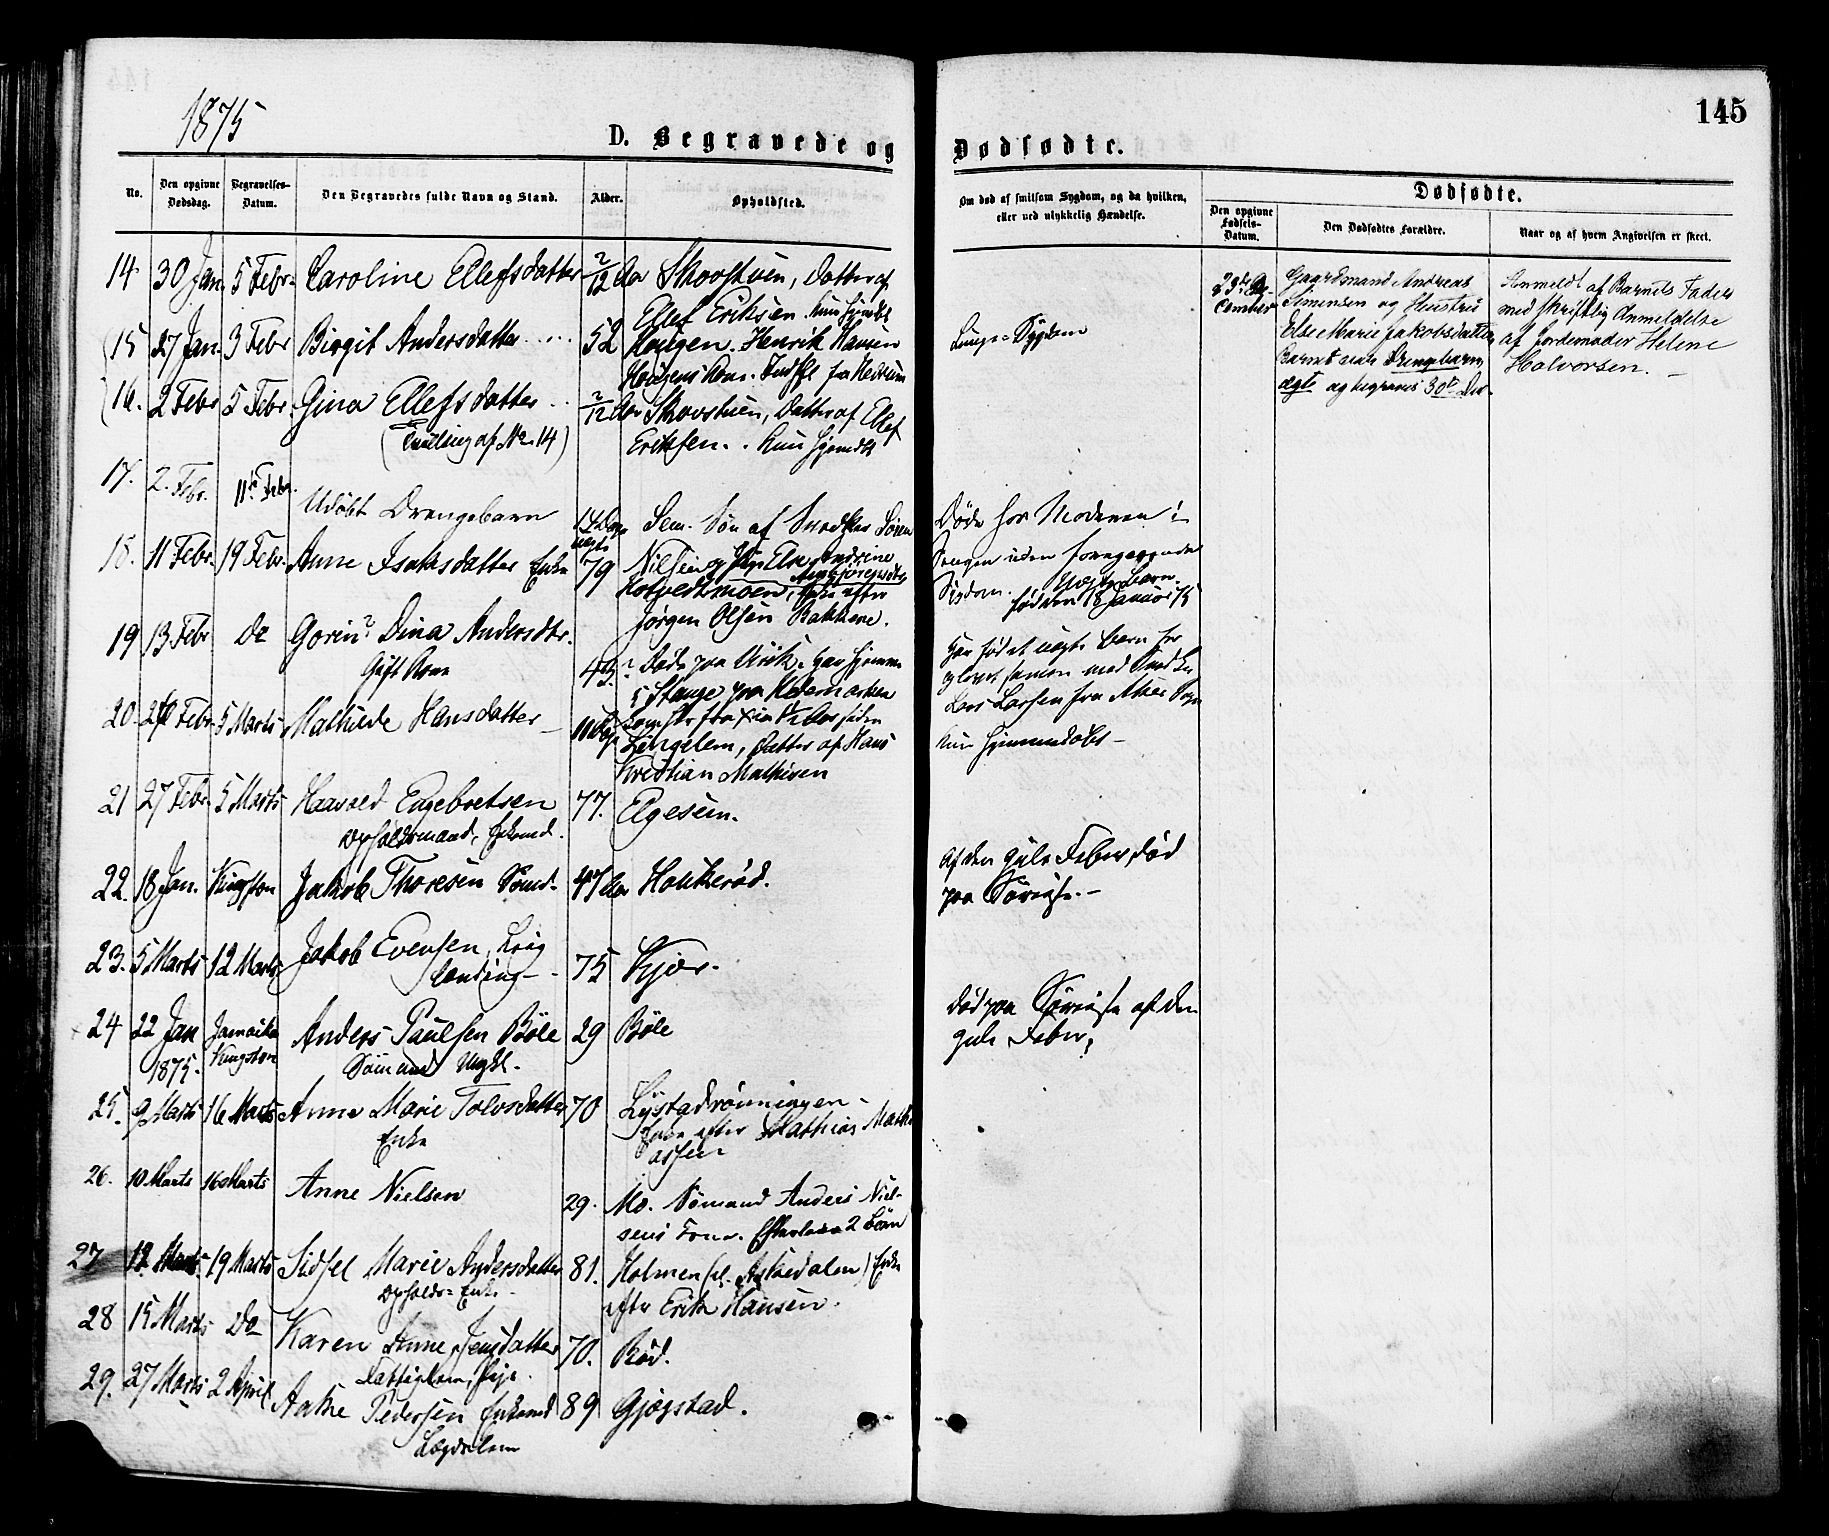 1875
145
D. Begravede og Dødfødte.
No.
Den opgivne Dødsdag.
Begravelses-Datum.
Den Begravedes fulde Navn og Stand.
Alder.
Opholdsted.
Om død af smitsom Sygdom, og da hvilken, eller ved ulykkelig Hændelse.
Dødfødte.
Den opgivne Fødsels-Datum.
Den Dødfødtes Forældre.
Naar og af hvem Angivelsen er skeet.
14 30 Jan 5 Febr. Caroline Ellefsdatter 2/12 Aar Skovstuen, Datter af
Ellef Eriksen. Kun hjemdbt
15 27 Jan. 3 Febr Birgit Andersdatter 52 Haugen. Henrik Hansen
Haugens Kone. Indfl. fra Hedrum
Lunge-Sygdom
16. 2 Febr 5 Febr. Gina Ellefsdatter 2/12 Aar Skovstuen, Datter af Ellef
(Tvilling af No 14) Eriksen. Kun hjemdbt
Gaardmand Andreas
Simensen og Hustru
Else Marie Jakobsdatter
Barnet var Drengebarn,
ægte og begravet 30te Dec.
Anmeldt af Barnets Fader
med skriftlig Anmeldelse
af Jordemoder Helene
Halvorsen.
17. 2. Febr. 11te Febr. Udøbt Drengebarn 14 Dage Sem. Søn af Søren
Nielsen og Else Andrine
Døde hos Moderen i
Sengen uden foregaaende
Sygdom. Uægte Barn.
født den 18 Januar 75
18. 11 Febr. 19 Febr. Anne Isaksdatter Enke 79 Holtvedtmoen, Enke efter
Jørgen Olsen Bakkene.
19 13 Febr Do Gorin? Dina Andersdtr. 43. Døde paa Virik. Har hjemme
Gift Kone i Stange paa Hedemarken
kom her fra for Aar siden
Har født uægte Barn for
og levet samen med
Lars Larsen fra Sogn
20. Febr. 5 Marts Mathilde Hansdatter Lingelem, Datter af Hans
Kristian Mathisen
kun hjemmedøbt
21 27 Febr. 5 Marts Haavald Engebretsen 77. Elgesem.
Opholdsmand, Enkemd.
22. 18 Jan. Kingston Jakob Thoresen Sømd. 47 Aar Haukerød.
Af den gule Feber, død
paa Søreise.
23. 5 Marts 12 Marts Jakob Evensen, 75 Kjær.
24 22 Jan Jamaika Anders Paulsen Bøle 29 Bøle
1875. Kingston Sømand Ungkl.
død paa Søreise af den
gule Feber,
25. 9 Marts 16 Marts Anne Marie Tolvsdatter 70 Lystadrønningen
Enke Enke efter Mathias Mathi-
assen
26. 10 Marts 16 Marts Anne Nielsen 29. Mo. Sømand Anders Niel-
sens Kone. Efterlader 2 Børn
27 12 Marts 19 Marts Sidsel Marie Andersdatter 81. Holmen (el. Askedalen) Enke
Opholds-Enke efter Erik Hansen.
28 15 Marts Do Karen Anne Jensdatter 70. Rød.
Fattiglem, Pige.
29. 27 Marts 2 April Aake Pedersen Enkemd 89 Gjøgstad.
Lægdslem